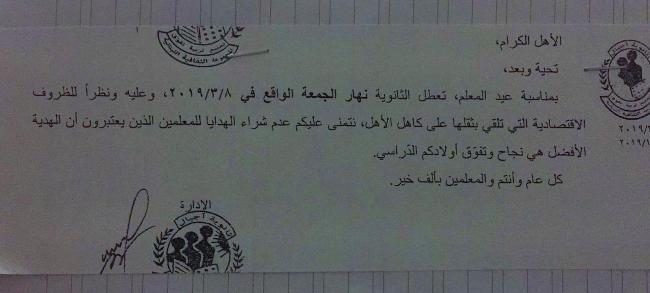 الأهل الكرام،
تحية وبعد،
بمناسبة عيد المعلم، تعطل الثانوية نهار الجمعة الواقع في ٢٠١٩/٣/٨، وعليه ونظراً للظروف
الاقتصادية التي تلقي بثقلها على كاهل الأهل، نتمنى عليكم عدم شراء الهدايا للمعلمين الذين يعتبرون أن الهدية
الأفضل هي نجاح وتفوّق أولادكم الدّراسي.
كل عام وأنتم والمعلمين بألف خير.
الإدارة
ثانوية أجيال